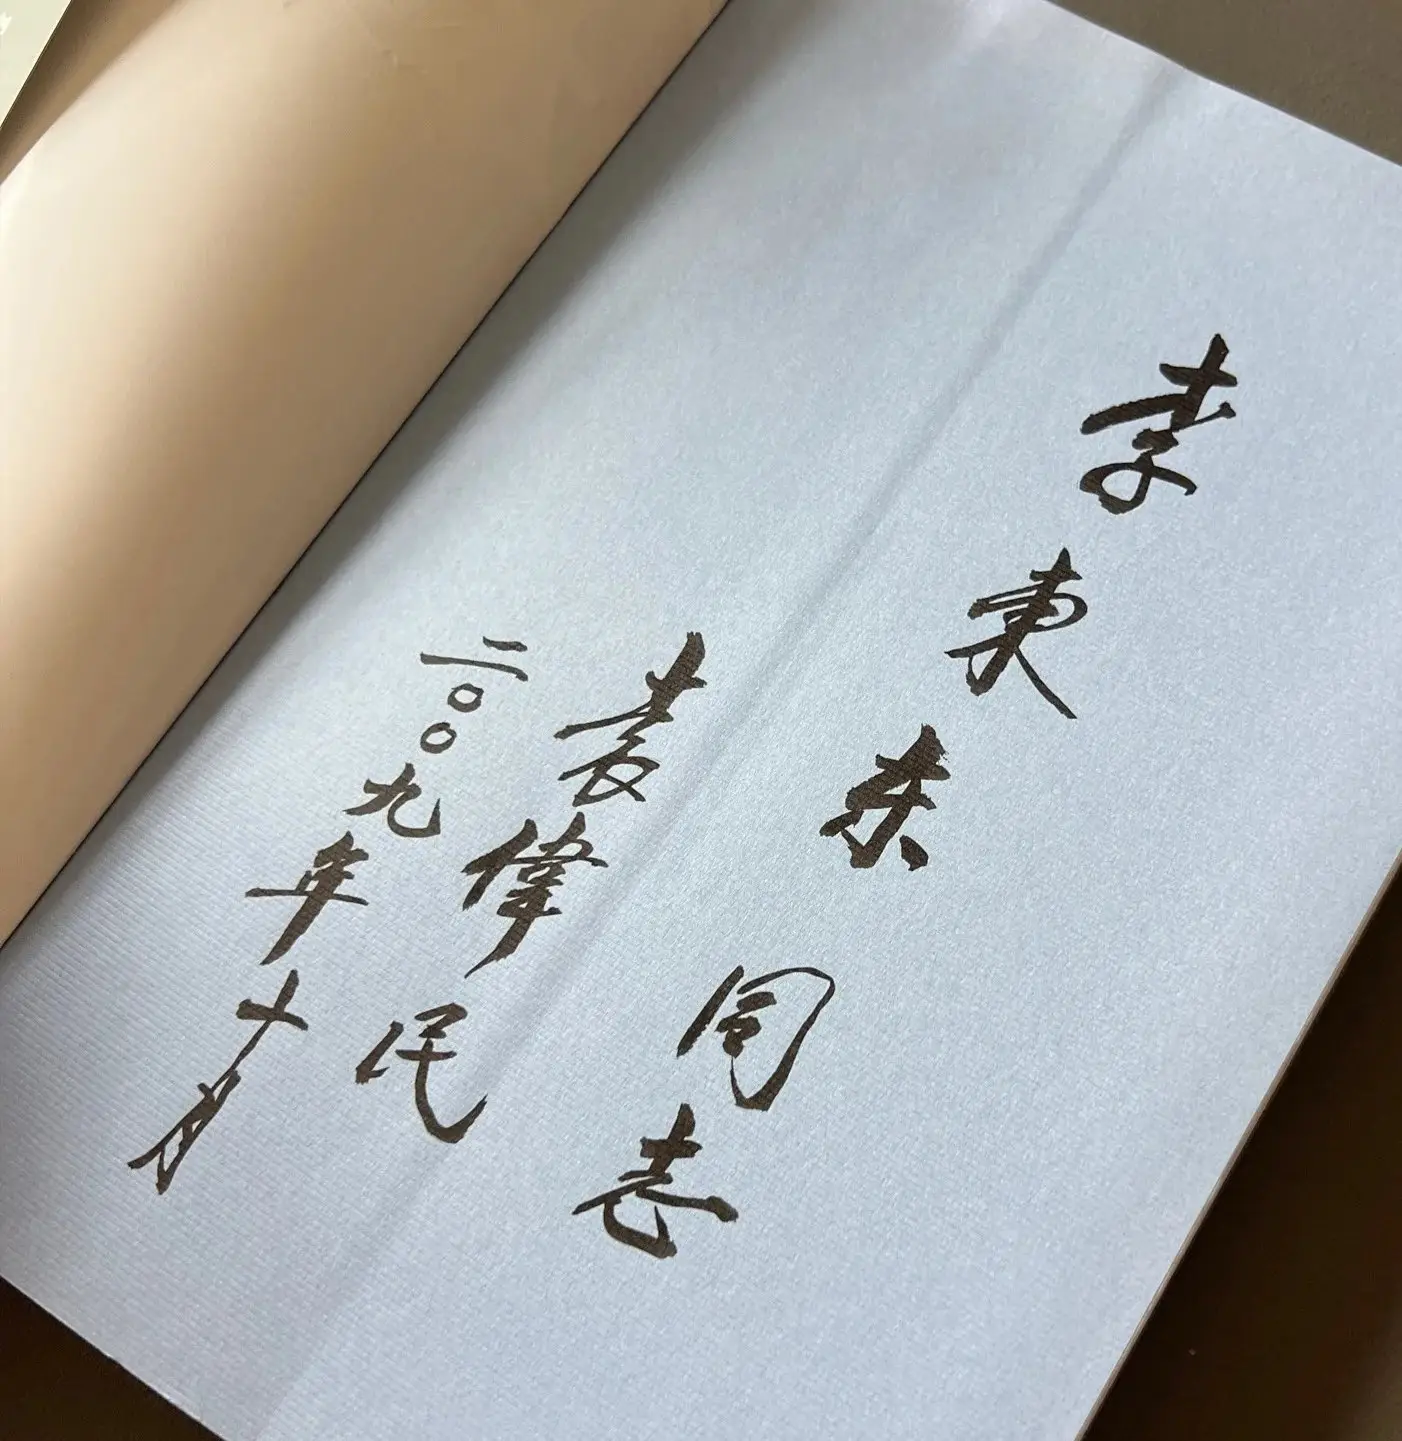 李東东同志
袁偉民
二〇〇九年十月